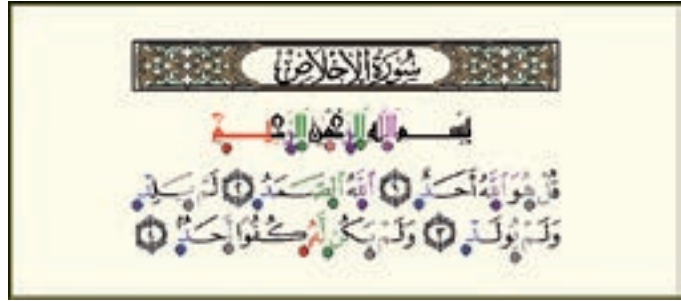 سُورَةُ الْإِخْلَاصِ
بِسْمِ اللَّهِ الرَّحْمَٰنِ الرَّحِيمِ
قُلْ هُوَ اللَّهُ أَحَدٌ ١ اللَّهُ الصَّمَدُ ٢ لَمْ يَلِدْ
وَلَمْ يُولَدْ ٣ وَلَمْ يَكُن لَّهُ كُفُوًا أَحَدٌ ٤